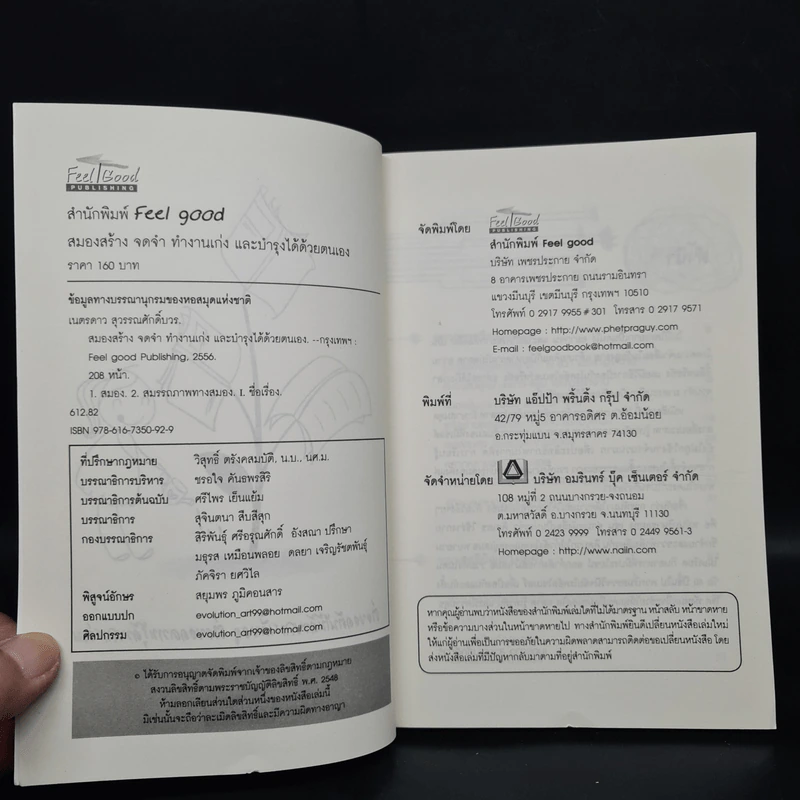 Feel Good
PUBLISHING
สำนักพิมพ์ Feel good
สมองสร้าง จดจำ ทำงานเก่ง และบำรุงได้ด้วยตนเอง
ราคา 160 บาท
ข้อมูลทางบรรณานุกรมของหอสมุดแห่งชาติ
เนตรดาว สุวรรณศักดิ์บวร.
สมองสร้าง จดจำ ทำงานเก่ง และบำรุงได้ด้วยตนเอง. --กรุงเทพฯ :
Feel good Publishing, 2556.
208 หน้า.
1. สมอง. 2. สมรรถภาพทางสมอง. I. ชื่อเรื่อง.
612.82
ISBN 978-616-7350-92-9
ที่ปรึกษากฎหมาย วิสุทธิ์ ตรังคสมบัติ, น.บ., นศ.ม.
บรรณาธิการบริหาร ขรอใจ คันธพรสิริ
บรรณาธิการต้นฉบับ ศรีไพร เย็นแย้ม
บรรณาธิการ สุจินตนา สืบสีสุก
กองบรรณาธิการ สิริพันธุ์ ศรีอรุณศักดิ์ อังสณา ปรึกษา
มธุรส เหมือนพลอย ดลยา เจริญรัชตพันธุ์
ภัคจิรา ยศวิไล
พิสูจน์อักษร สยุมพร ภูมิคอนสาร
ออกแบบปก evolution_art99@hotmail.com
ศิลปกรรม evolution_art99@hotmail.com
© ได้รับการอนุญาตจัดพิมพ์จากเจ้าของลิขสิทธิ์ตามกฎหมาย
สงวนลิขสิทธิ์ตามพระราชบัญญัติลิขสิทธิ์ พ.ศ. 2548
ห้ามลอกเลียนส่วนใดส่วนหนึ่งของหนังสือเล่มนี้
มิเช่นนั้นจะถือว่าละเมิดลิขสิทธิ์และมีความผิดทางอาญา
จัดพิมพ์โดย Feel Good
PUBLISHING
สำนักพิมพ์ Feel good
บริษัท เพชรประกาย จำกัด
8 อาคารเพชรประกาย ถนนรามอินทรา
แขวงมีนบุรี เขตมีนบุรี กรุงเทพฯ 10510
โทรศัพท์ 0 2917 9955 # 301 โทรสาร 0 2917 9571
Homepage : http://www.phetpraguy.com
E-mail : feelgoodbook@hotmail.com
พิมพ์ที่ บริษัท แอ๊ปป้า พริ้นติ้ง กรุ๊ป จำกัด
42/79 หมู่5 อาคารอดิศร ต.อ้อมน้อย
อ.กระทุ่มแบน จ.สมุทรสาคร 74130
จัดจำหน่ายโดย บริษัท อมรินทร์ บุ๊ค เซ็นเตอร์ จำกัด
108 หมู่ที่ 2 ถนนบางกรวย-จงถนอม
ต.มหาสวัสดิ์ อ.บางกรวย จ.นนทบุรี 11130
โทรศัพท์ 0 2423 9999 โทรสาร 0 2449 9561-3
Homepage : http://www.naiin.com
หากคุณผู้อ่านพบว่าหนังสือของสำนักพิมพ์เล่มใดที่ไม่ได้มาตรฐาน หน้าสลับ หน้าขาดหาย
หรือข้อความบางส่วนในหน้าขาดหายไป ทางสำนักพิมพ์ยินดีเปลี่ยนหนังสือเล่มใหม่
ให้แก่ผู้อ่านเพื่อเป็นการขออภัยในความผิดพลาดสามารถติดต่อขอเปลี่ยนหนังสือ โดย
ส่งหนังสือเล่มที่มีปัญหากลับมาตามที่อยู่สำนักพิมพ์